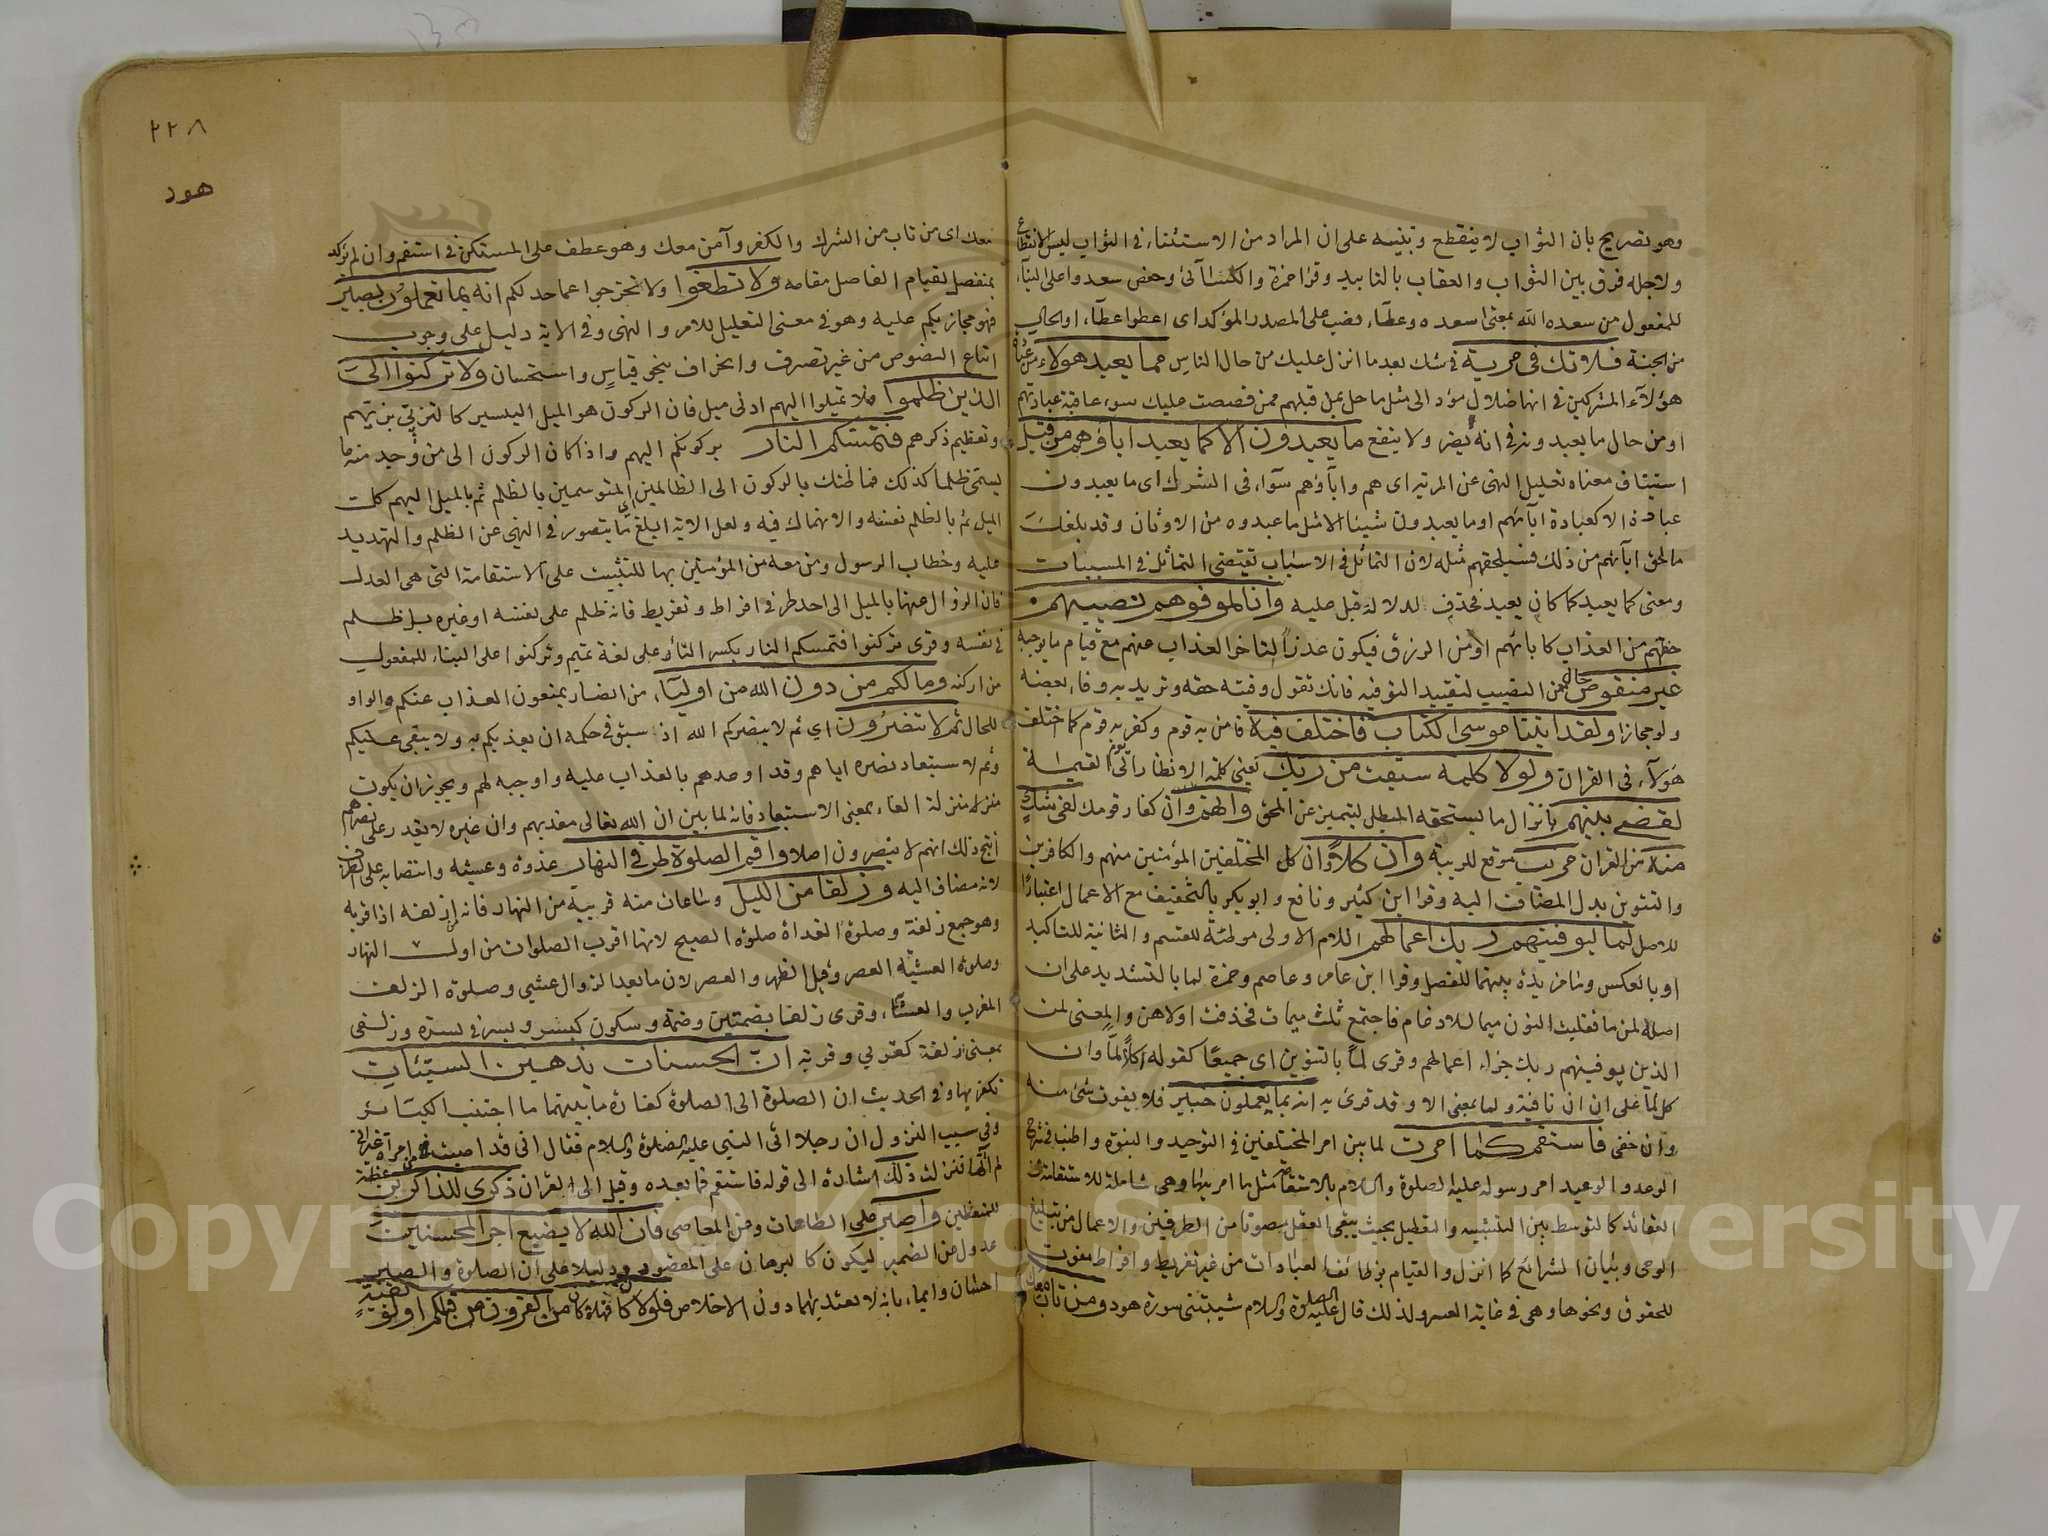 وهو تصريح بان الثواب لا ينقطع وتنبيه على ان المراد من الاستثناء في الثواب ليس الانقطاع
ولاجله فرق بين الثواب والعقاب بالتابيد وقرا حمزة والكسائي وحفص سعدوا على البناء
للمفعول من سعده الله بمعنى اسعده وعطاء نصب على المصدر المؤكد اى اعطوا عطاء او الحال
من الجنة فلا تك في مرية في شك بعد ما انزل عليك من حال الناس مما يعبد هولاء من عبادة
هؤلاء المشركين في انها ضلال مؤد الى مثل ما حل بمن قبلهم ممن قصصت عليك سوء عاقبة عبادتهم
او من حال ما يعبدونه في انه يضر ولا ينفع ما يعبدون الا كما يعبد اباؤهم من قبل
استيناف معناه تعليل النهى عن المرية اى هم وآباؤهم سواء في الشرك اى ما يعبدون
عبادة الا كعبادة آبائهم او ما يعبدون شيئا الا مثل ما عبدوه من الاوثان وقد بلغك
ما لحق اباءهم من ذلك فسيلحقهم مثله لان التماثل في الاسباب يقتضى التماثل في المسببات
ومعنى كما يعبد كما كان يعبد فحذف لدلالة قبل عليه وانا لموفوهم نصيبهم
حظهم من العذاب كابائهم او من الرزق فيكون عذرا لتاخر العذاب عنهم مع قيام ما يوجبه
غير منقوص حال من النصيب لتقييد التوفيه فانك تقول وفيته حقه وتريد به وفاء بعضه
ولو مجازا ولقد اتينا موسى الكتاب فاختلف فيه فامن به قوم وكفر به قوم كما اختلف
هؤلاء في القران ولولا كلمة سبقت من ربك يعنى كلمة الانظار الى يوم القيامة
لقضى بينهم بانزال ما يستحقه المبطل ليتميز عن المحق وانهم وان كفار قومك لفى شك
منه من القران مريب موقع للريبة وان كلا وان كل المختلفين المؤمنين منهم والكافرين
والتنوين بدل المضاف اليه وقرا ابن كثير ونافع وابو بكر بالتخفيف مع الاعمال اعتبارا
للاصل لما ليوفينهم ربك اعمالهم اللام الاولى موطئة للقسم والثانية للتاكيد
او بالعكس وما مزيدة بينهما للفصل وقرا ابن عامر وعاصم وحمزة لما بالتشديد على ان
اصله لمن ما فقلبت النون ميما للادغام فاجتمع ثلث ميمات فحذفت اولاهن والمعنى لمن
الذين يوفينهم ربك جزاء اعمالهم وقرى لما بالتنوين اى جميعا كقوله اكلا لما وان
كل لما على ان ان نافية ولما بمعنى الا وقد قرئ به انه بما يعملون خبير فلا يفوت شئ منه
وان خفى فاستقم كما امرت لما بين امر المختلفين في التوحيد والنبوة واطنب في شرح
الوعد والوعيد امر رسوله عليه الصلوة والسلام بالاستقامة مثل ما امر بها وهى شاملة للاستقامة في
العقائد كالتوسط بين التشبيه والتعطيل بحيث يبقى العقل مصونا من الطرفين والاعمال من تبليغ
الوحى وبيان الشرائع كما انزل والقيام بوظائف العبادات من غير تفريط وافراط مفوت
للحقوق ونحوها وهى في غاية العسر ولذلك قال عليه الصلوة والسلام شيبتنى سورة هود ومن تاب معك
٢٢٨
هود
معك اى من تاب من الشرك والكفر وآمن معك وهو عطف على المستكن في استقم وان لم يؤكد
بمنفصل لقيام الفاصل مقامه ولا تطغوا ولا تخرجوا عما حد لكم انه بما تعملون بصير
فهو مجازيكم عليه وهو في معنى التعليل للامر والنهى وفي الاية دليل على وجوب
اتباع النصوص من غير تصرف وانحراف بنحو قياس واستحسان ولا تركنوا الى
الذين ظلموا فلا تميلوا اليهم ادنى ميل فان الركون هو الميل اليسير كالتزيى بزيهم
وتعظيم ذكرهم فتمسكم النار بركونكم اليهم واذا كان الركون الى من وجد منه ما
يسمى ظلما كذلك فما ظنك بالركون الى الظالمين الموسومين بالظلم ثم بالميل اليهم كل
الميل ثم بالظلم نفسه والانهماك فيه ولعل الاية ابلغ ما يتصور في النهى عن الظلم والتهديد
عليه وخطاب الرسول ومن معه من المؤمنين بها للتثبيت على الاستقامة التى هى العدل
فان الزوال عنها بالميل الى احد طرفي افراط وتفريط فانه ظلم على نفسه او غيره بل ظلم
في نفسه وقرى تركنوا فتمسكم النار بكسر التاء على لغة تميم وتركنوا على البناء للمفعول
من اركنه وما لكم من دون الله من اولياء من انصار يمنعون العذاب عنكم والواو
للحال ثم لا تنصرون اي ثم لا ينصركم الله اذ سبق في حكمه ان يعذبكم به ولا يبقى عليكم
وثم لاستبعاد نصره اياهم وقد اوعدهم بالعذاب عليه واوجبه لهم ويجوز ان يكون
منزلا منزلة الفاء بمعنى الاستبعاد فانه لما بين ان الله تعالى معذبهم وان غيره لا يقدر على نصرهم
انتج ذلك انهم لا ينصرون اصلا واقم الصلوة طرفي النهار غدوة وعشية وانتصابه على الظرف
لانه مضاف اليه وزلفا من الليل وساعات منه قريبة من النهار فانه من ازلفه اذا قربه
وهو جمع زلفة وصلوة الغداة صلوة الصبح لانها اقرب الصلوات من اول النهار
وصلوة العشية العصر وقيل الظهر والعصر لان ما بعد الزوال عشي وصلوة الزلف
المغرب والعشاء وقرى زلفا بضمتين وضمة وسكون كبسر وبسر في بسرة وزلفى
بمعنى زلفة كقربي وقربة ان الحسنات يذهبن السيئات
تكفرنها وفي الحديث ان الصلوة الى الصلوة كفارة ما بينهما ما اجتنب الكبائر
وفي سبب النزول ان رجلا اتى النبي عليه الصلوة والسلام فقال انى قد اصبت من امرأة غير انى
لم اتها فنزلت ذلك اشارة الى قوله فاستقم فما بعده وقيل الى القران ذكرى للذاكرين عظة
للمتعظين واصبر على الطاعات وعن المعاصى فان الله لا يضيع اجر المحسنين
عدول عن الضمير ليكون كالبرهان على المقصود ودليلا على ان الصلوة والصبر
احسان وايماء بانه لا يعتد بهما دون الاخلاص فلولا كان فهلا كان من القرون من قبلكم اولوا بقية
Copyright © King Saud University